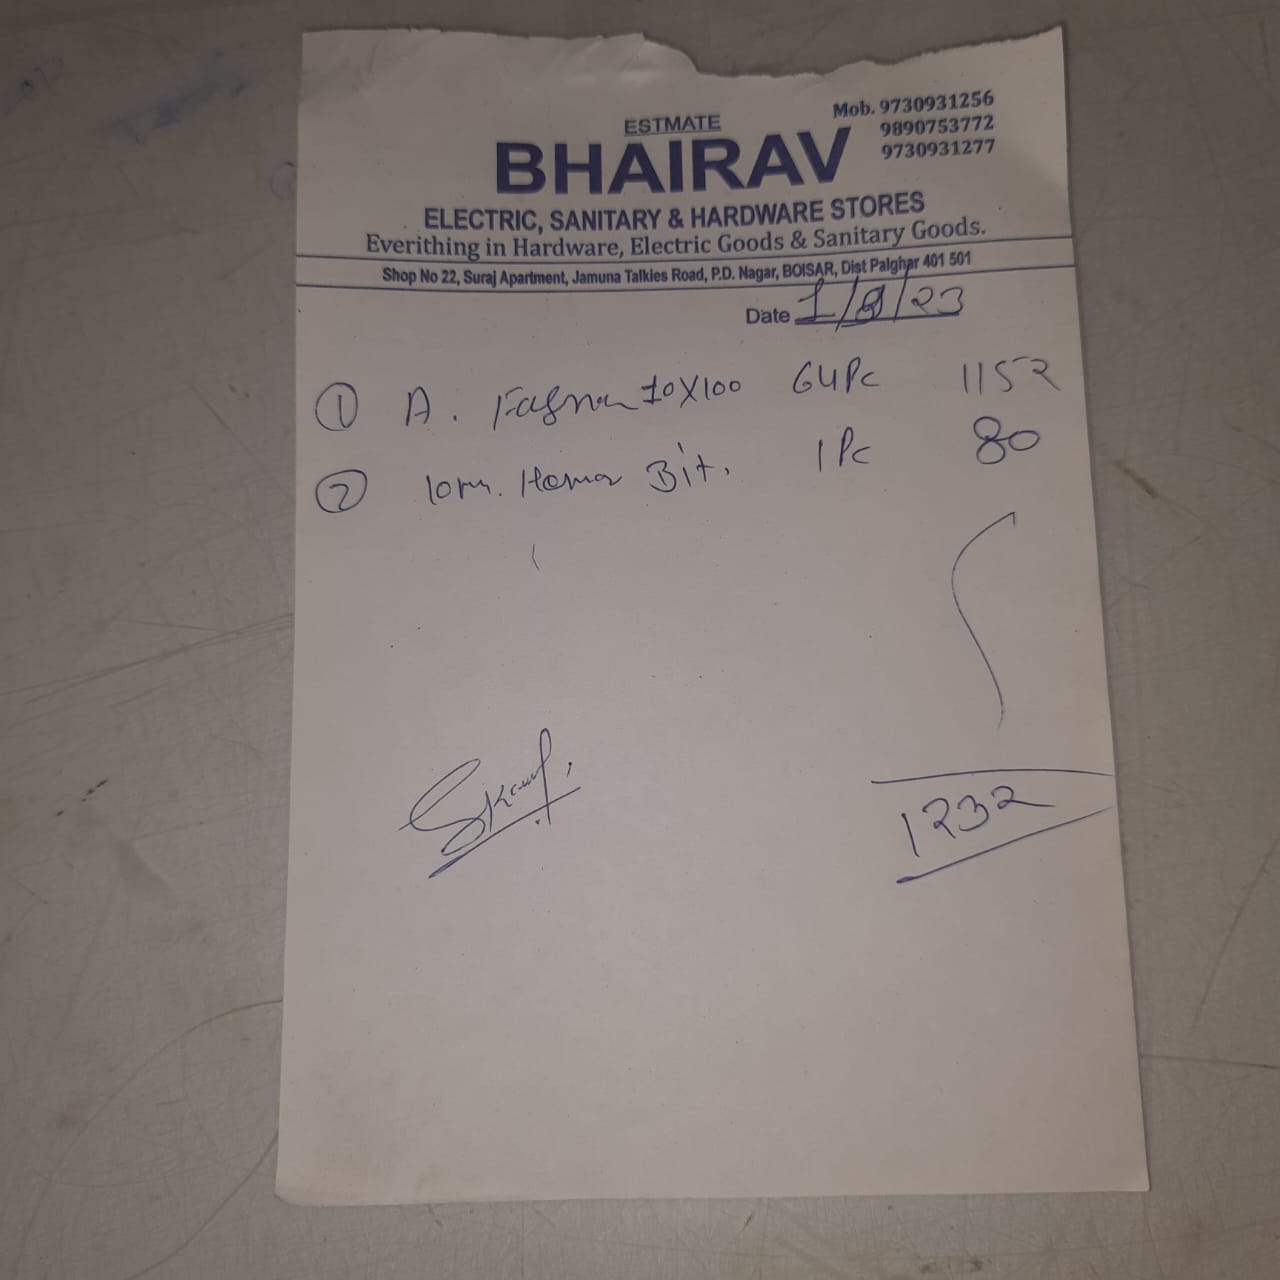 ESTMATE
Mob. 9730931256
9890753772
9730931277
BHAIRAV
ELECTRIC, SANITARY & HARDWARE STORES
Everithing in Hardware, Electric Goods & Sanitary Goods.
Shop No 22, Suraj Apartment, Jamuna Talkies Road, P.D. Nagar, BOISAR, Dist Palghar 401 501
Date 1/ /23
① A. 10X100 64Pc 1152
② 10m. Bit. 1 Pc 80
1232